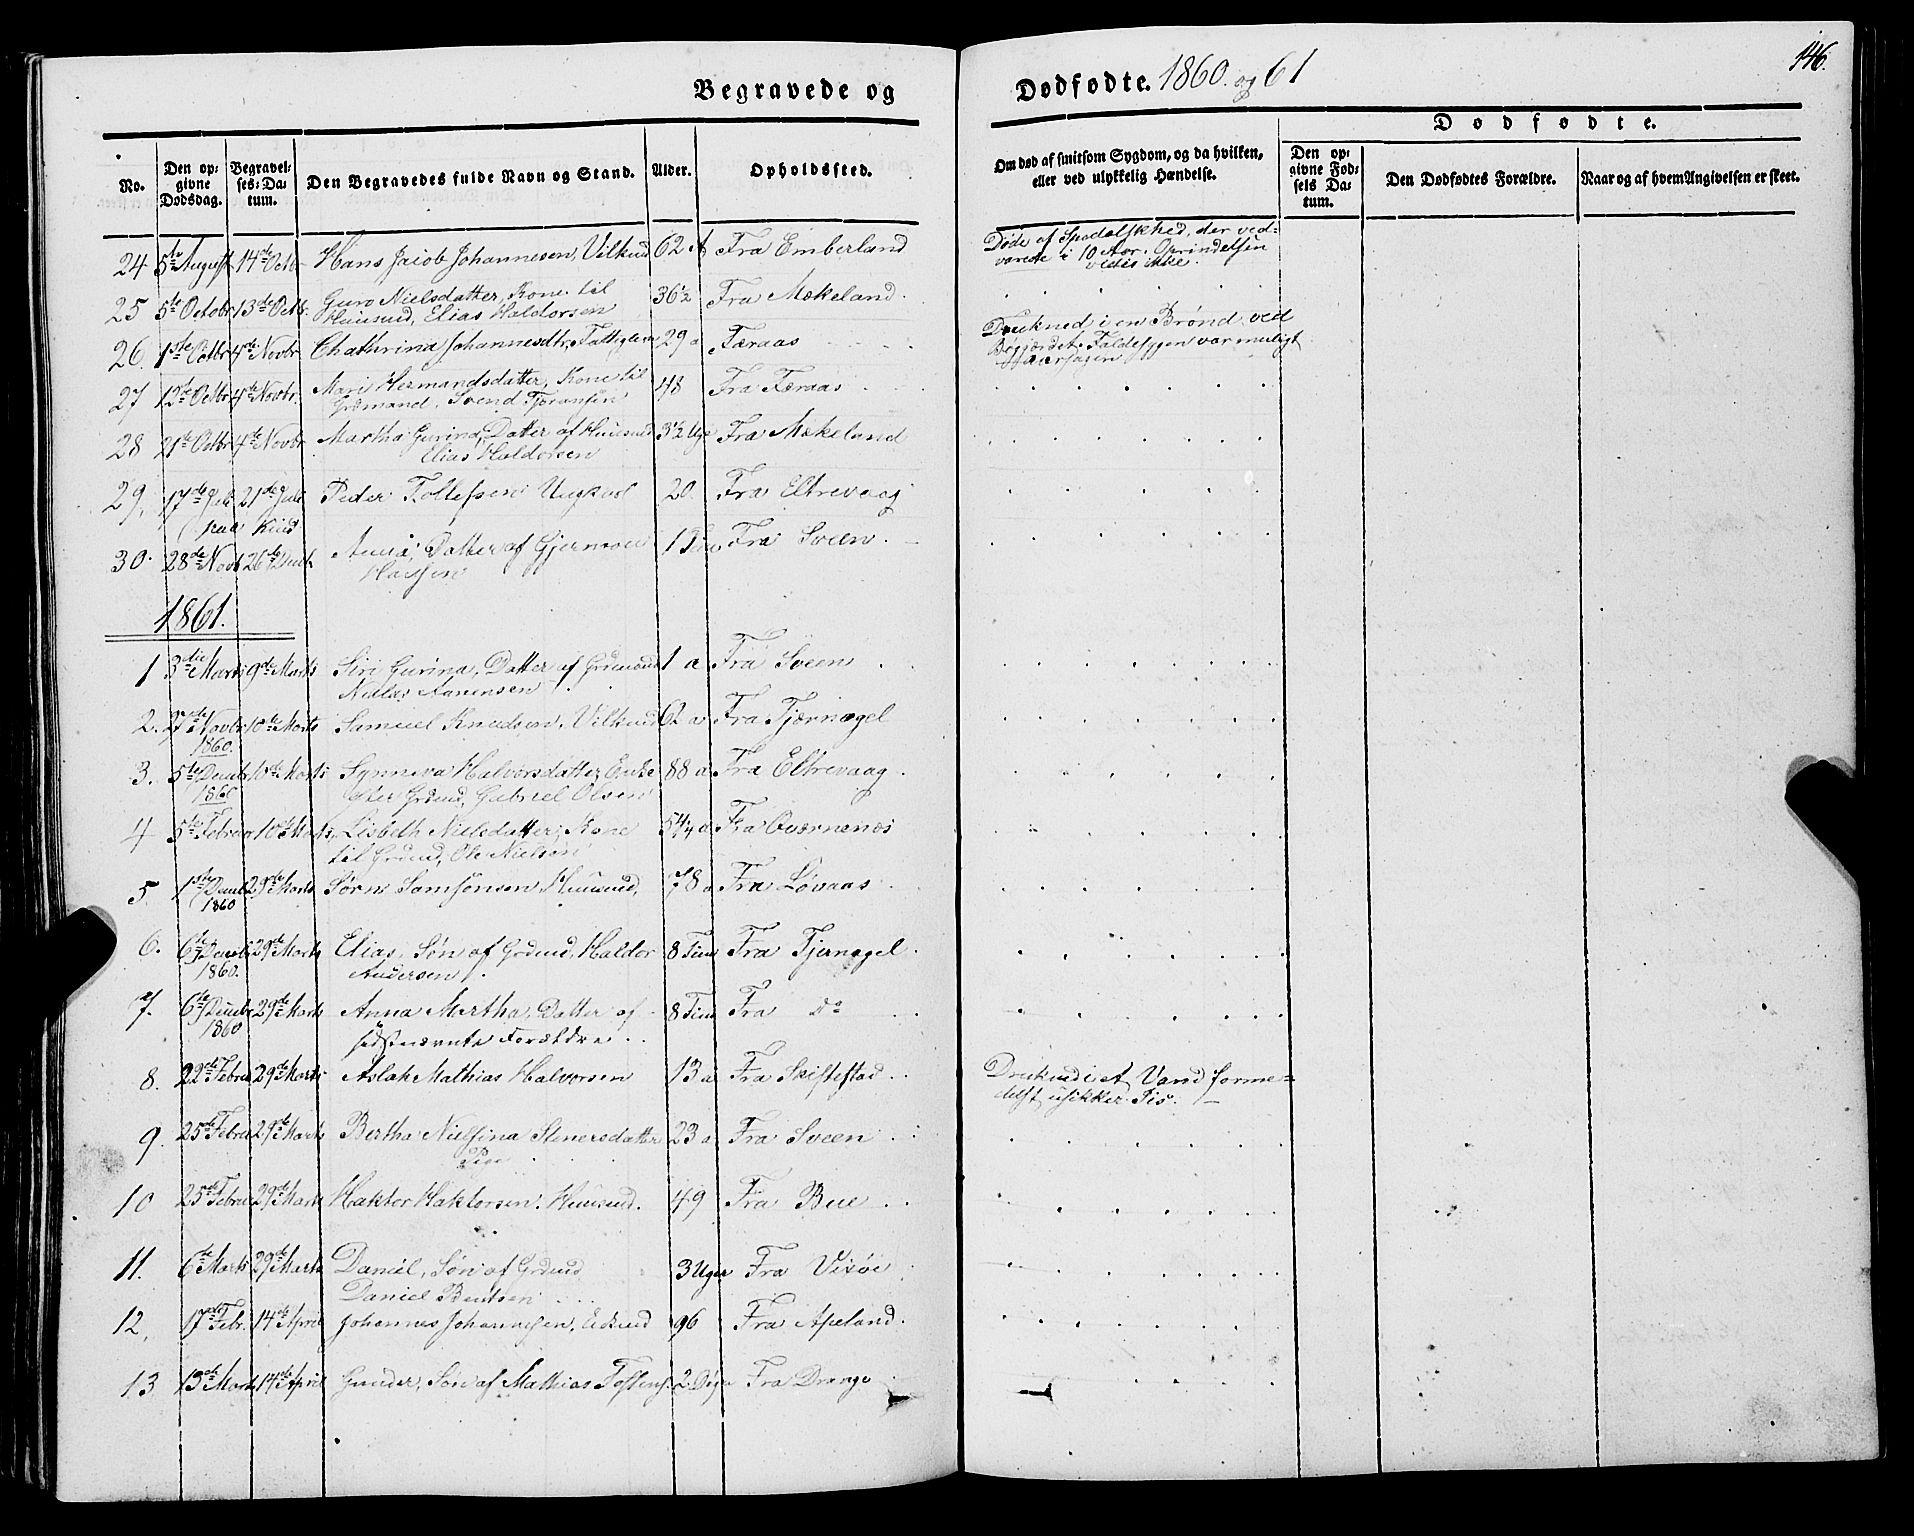 146.
Begravede og Dødfødte. 1860. og 61
Dødfødte.
No.
Den opgivne Dødsdag.
Begravelses-Datum.
Den Begravedes fulde Navn og Stand.
Alder.
Opholdssted.
Om død af smitsom Sygdom, og da hvilken,
eller ved ulykkelig Hændelse.
Den opgivne Fødsels Datum.
Den Dødfødtes Forældre.
Naar og af hvem Angivelsen er skeet.
24 5te August 14de Octbr Hans Jacob Johannesen, Vilkmd 62 A Fra Emberland Døde af Spedalskhed, der ved-
varede i 10 Aar. Oprindelsen
vides ikke.
25 5te Octobr 13de Octbr. Guro Nielsdatter, Kone til 36½ Fra Mækeland.
Huusmd, Elias Haldorsen
26. 1ste Octbr 4de Novbr Chathrina Johannesdtr, Fattiglem 29 a Færaas Drukned i en Brønd ved
Faldesygen var muligt
Aarsagen
27 12te Octbr 4de Novbr. Mari Hermandsdatter, Kone til 48 Fra Færaas.
Grdmand, Svend
28 21de Octbr 4de Novbr Martha Gurina, Datter af Huusmd 3½ Uge Fra Mækeland
Elias Haldorsen
29, 17de Juli 21de Juli Peder Tollefsen Ungkarl 20. Fra Eltrevaag
30. 28de Novb 26de Decbr Anna, Datter af 1 Fra Sveen.
1861.
1 3die Marts 9de Marts Siri Gurina, Datter af Grdmand 1 a Fra Sveen
2. 27de Novbr 10de Marts Samuel Knudsen, Vilkmd 62 a Fra Tjernagel
1860.
3. 5te Decbr 10de Marts Synneva Halvorsdatter, Enke 88 a Fra Eltrevaag.
1860 efter Grdmd, Gabriel Olsen
4 5te Februar 10de Marts, Lisbeth Nielsdatter, Kone 54¼ a Fra Qværnenæs
til Grdmd, Ole Nielsen
5. 1ste Decbr 29de Marts Sørn Samsonsen Huusmd, 78 a Fra Løvaas
1860
6. 6te Decbr 29de Marts Elias, Søn af Grdmd, Haldor 8 Timr Fra Tjernagel.
1860. Andersen.
7. 6te Decbr 29de Marts Anna Martha, Datter af 8 Timr Fra do
1860 sidstnævnte Forældre..
8. 22de Febru 29de Marts Aslak Mathias Halvorsen 13 a Fra Skistestad. Druknedi et Vand forme-
delst usikker Iis.
9. 25de Febru 29de Marts Bertha Nielsina Stenersdatter 23 a Fra Sveen
Pige
10 25de Febru 29de Marts Haktor Haktorsen. Huusmd. 49 Fra Bue
11. 6te Marts 29de Marts Daniel, Søn af Grdmd 3 Uger Fra Vixøe
Daniel Bentsen
12. 17de Febr. 14de April Johannes Johannesen, 96 Fra Apeland.
13 13de Marts 14de April Gunder, Søn af Mathias 2 Dage Fra Drange